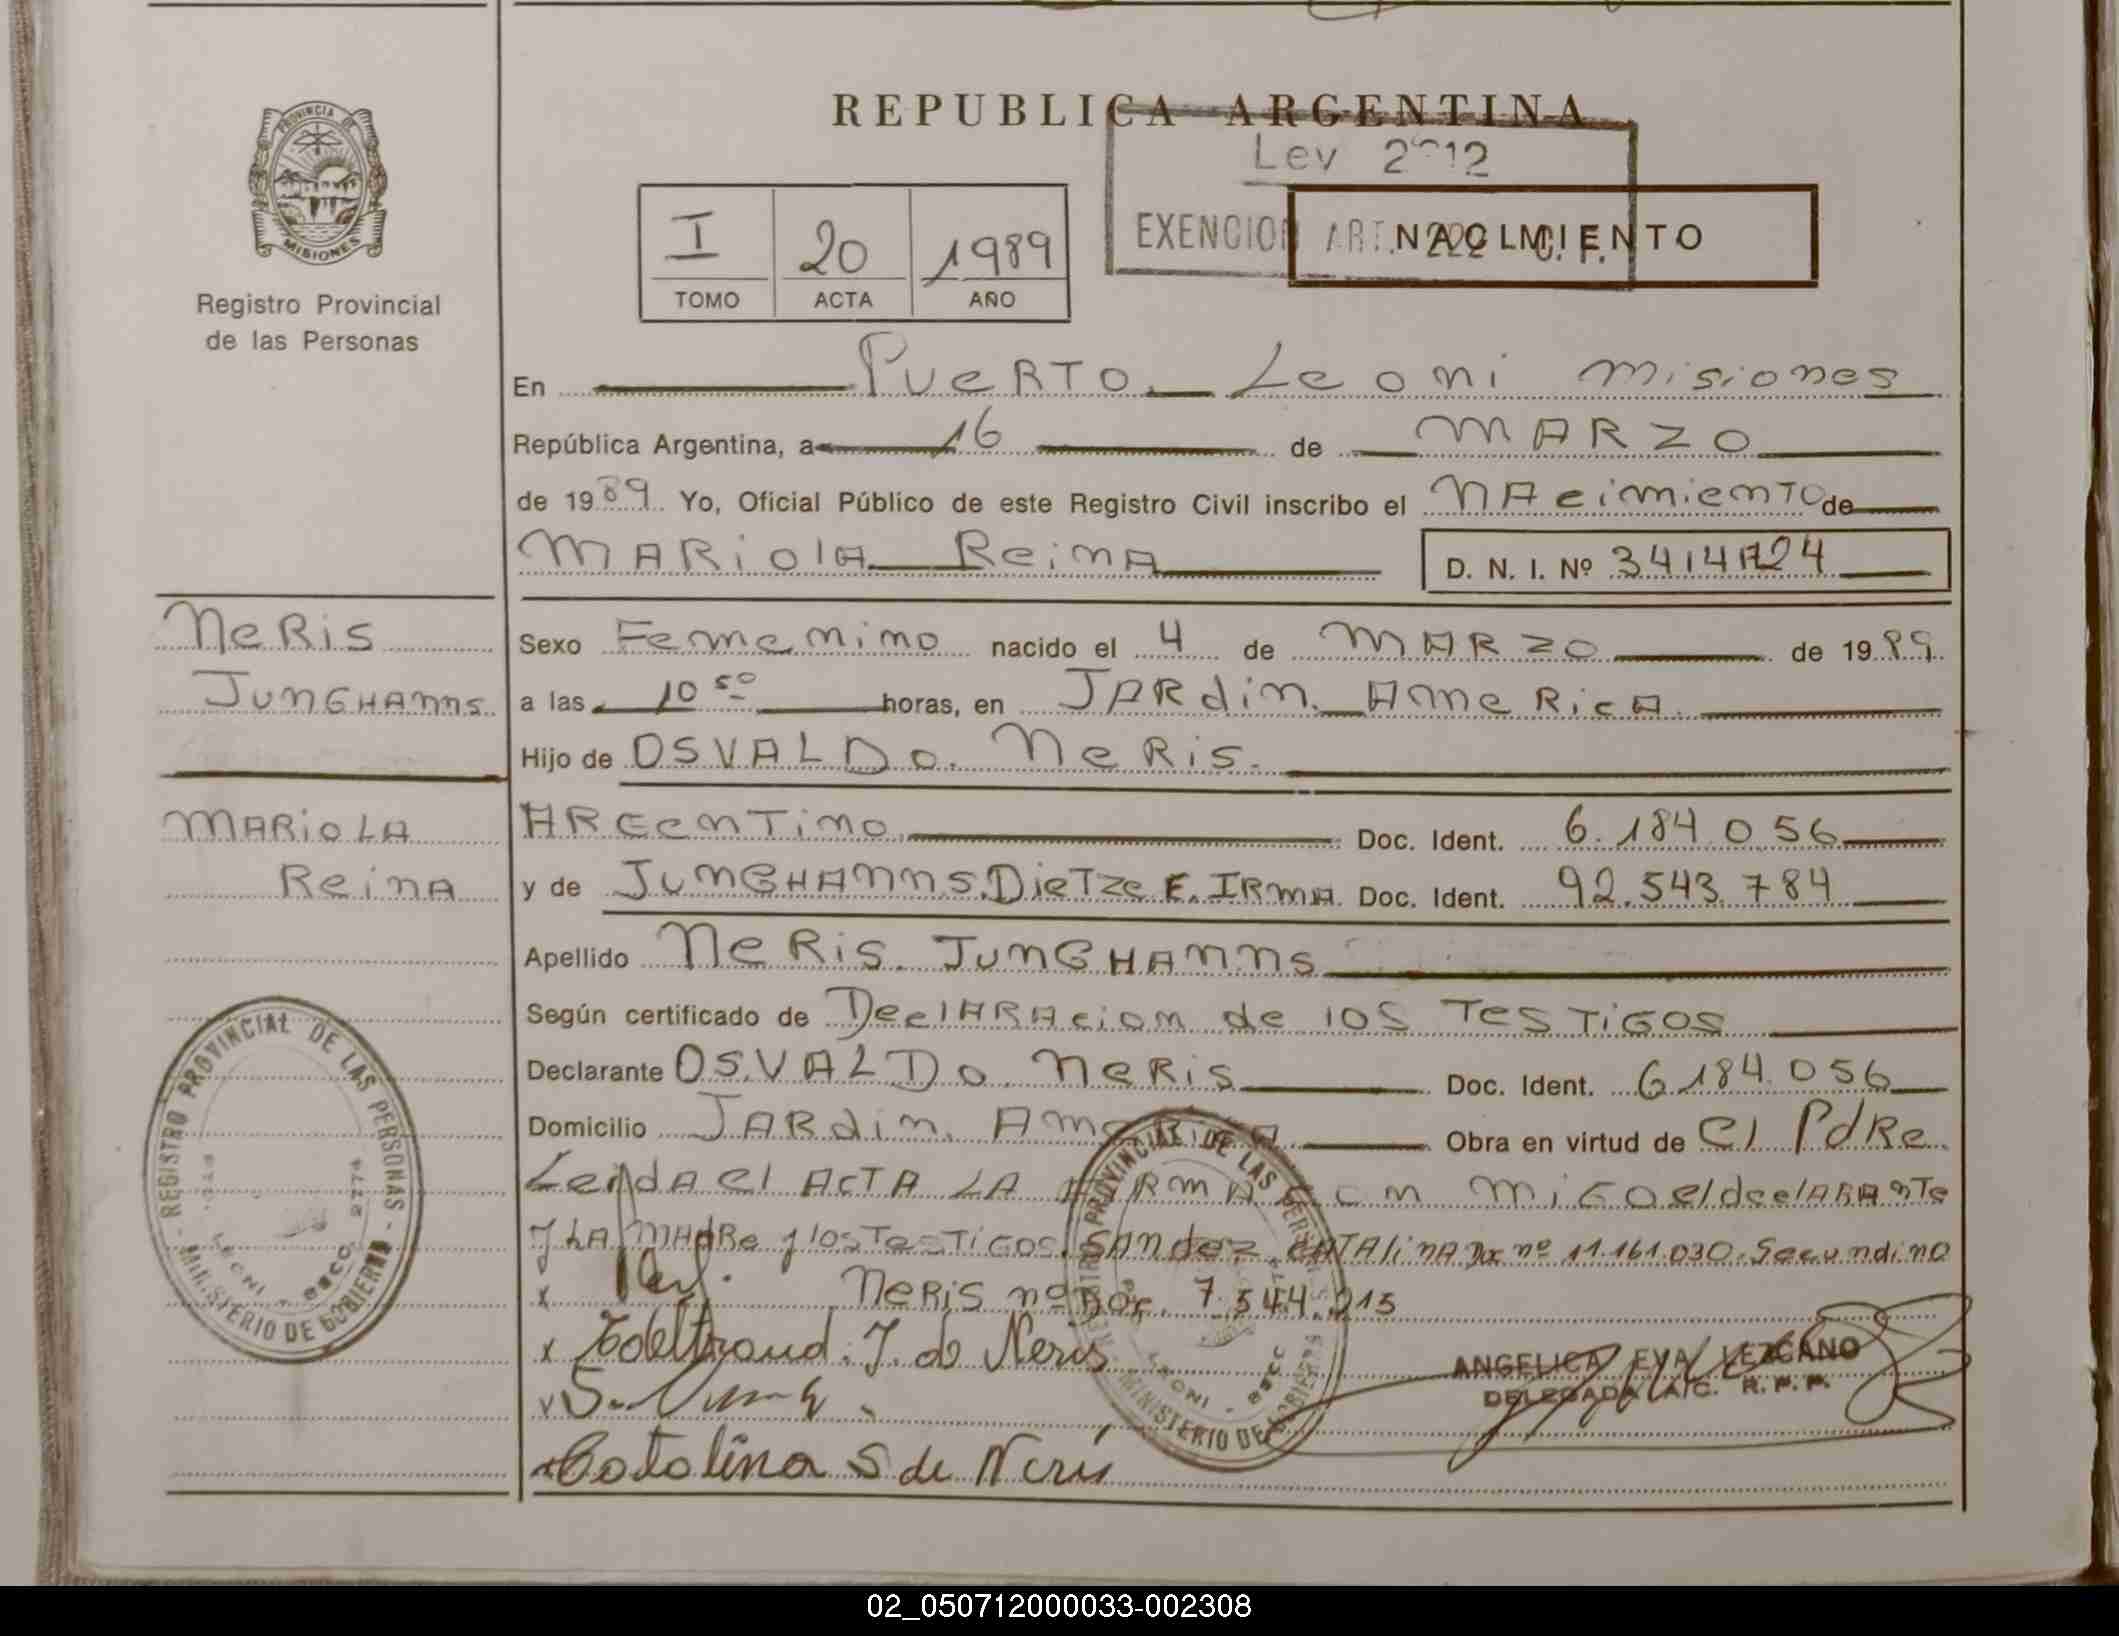 PROVINCIA DE
MISIONES
Registro Provincial
de las Personas
REPUBLICA ARGENTINA
Ley 2212
EXENCION ART. 222 C. F.
NACIMIENTO
I 20 1989
TOMO ACTA AÑO
En Puerto Leoni misiones
República Argentina, a 16 de MARZO
de 1989 Yo, Oficial Público de este Registro Civil inscribo el NAcimiento de
MARiola Reina D. N. I. Nº
NeRis
JUNGHANns
Sexo Femenino nacido el 4 de MARZO de 1989
a las 10 50 horas, en JARdin AmeRicA
Hijo de OSVALDo NeRis.
MARIOLA
ReinA
ARGenTino Doc. Ident. 6.184.056
y de JUNGHANNS DieTze E. IRmA Doc. Ident. 92.543.784
Apellido NeRis JUNGHANNS
Según certificado de DeclARAcion de los TesTiGos
Declarante OSVALDo NeRis Doc. Ident. 6.184.056
Domicilio JARdin AmeRicA Obra en virtud de el PdRe
LeidA el ActA LA FiRmA con miGo el declARAnTe
y LA MADRe y los TesTiGos SANdez CATAlinA Doc nº 11.161.030. Secundino
x NeRis nº Doc. 7.544.215
x Edeltraud J. de Neris
x Catalina S de Neris
REGISTRO PROVINCIAL DE LAS PERSONAS - MINISTERIO DE GOBIERNO
LEONI
REGISTRO PROVINCIAL DE LAS PERSONAS - MINISTERIO DE GOBIERNO
LEONI
ANGELICA EVA LEZCANO
DELEGADA A/C. R. P. P.
02_050712000033-002308